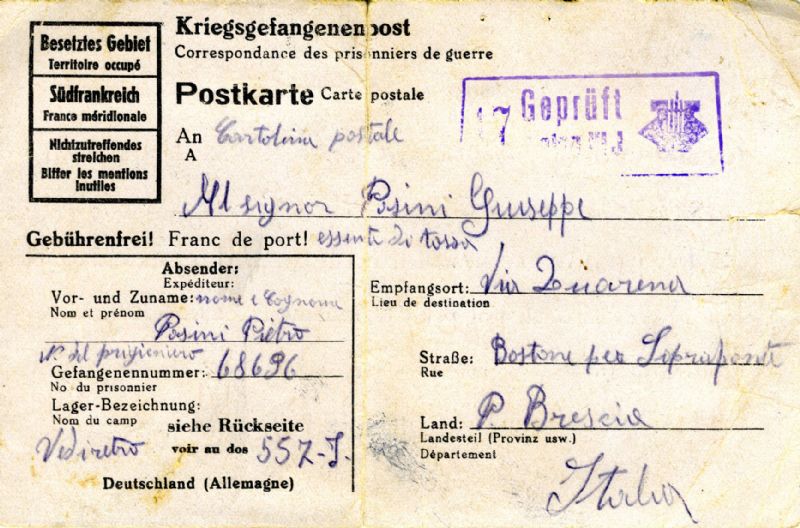 Besetztes Gebiet
Territoire occupé
Südfrankreich
France méridionale
Nichtzutreffendes
streichen
Biffer les mentions
inutiles
Kriegsgefangenenpost
Correspondance des prisonniers de guerre
Postkarte Carte postale
Geprüft
17
An Cartolina postale
A
Al signor Posini Giuseppe
Gebührenfrei! Franc de port! essente di tassa
Absender:
Expéditeur:
Vor- und Zuname: nome e Cognome
Nom et prénom
Posini Pietro
N. del prigioniero
Gefangenennummer: 68696
No du prisonnier
Lager-Bezeichnung:
Nom du camp
siehe Rückseite
Vedi retro voir au dos 557-J.
Deutschland (Allemagne)
Empfangsort: Via Quarena
Lieu de destination
Straße: Bostone per Sopraponte
Rue
Land: P. Brescia
Landesteil (Provinz usw.)
Département
Italia